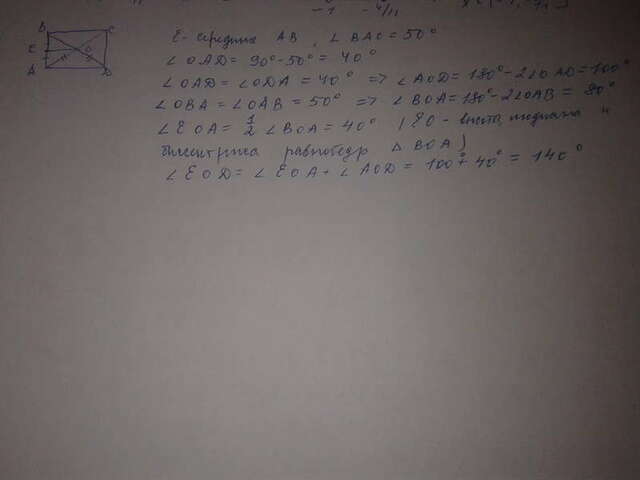 -1 -4/11
B C
E O
A D
E - середина AB, ∠BAO = 50°
∠OAD = 90° - 50° = 40°
∠OAD = ∠ODA = 40° => ∠AOD = 180° - 2∠OAD = 100°
∠OBA = ∠OAB = 50° => ∠BOA = 180° - 2∠OAB = 80°
∠EOA = 1/2 ∠BOA = 40° (EO - высота, медиана и
биссектриса равнобедр △BOA)
∠EOD = ∠EOA + ∠AOD = 100° + 40° = 140°